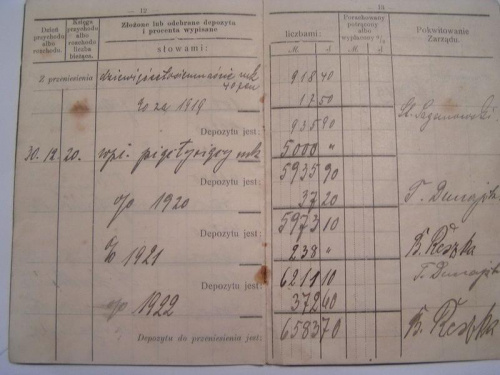 12
13
Dzień przychodu albo rozchodu
Księga przychodu albo rozchodu liczba bieżąca.
Złożone lub odebrane depozyta i procenta wypisane
słowami:
liczbami:
M.
Porachowany potrącony albo wypłacony
M.
Pokwitowanie Zarządu.
Z przeniesienia
mk
40 fen
918 40
% za 1919
17 50
Depozytu jest:
935 90
30. 12. 20.
wpł. pięć tysięcy mk
5000 "
Depozytu jest:
5935 90
% 1920
37 20
Depozytu jest:
5973 10
% 1921
238 "
B. Reszka
Depozytu jest:
6211 10
% 1922
372 60
Depozytu do przeniesienia jest:
6583 70
B. Reszka